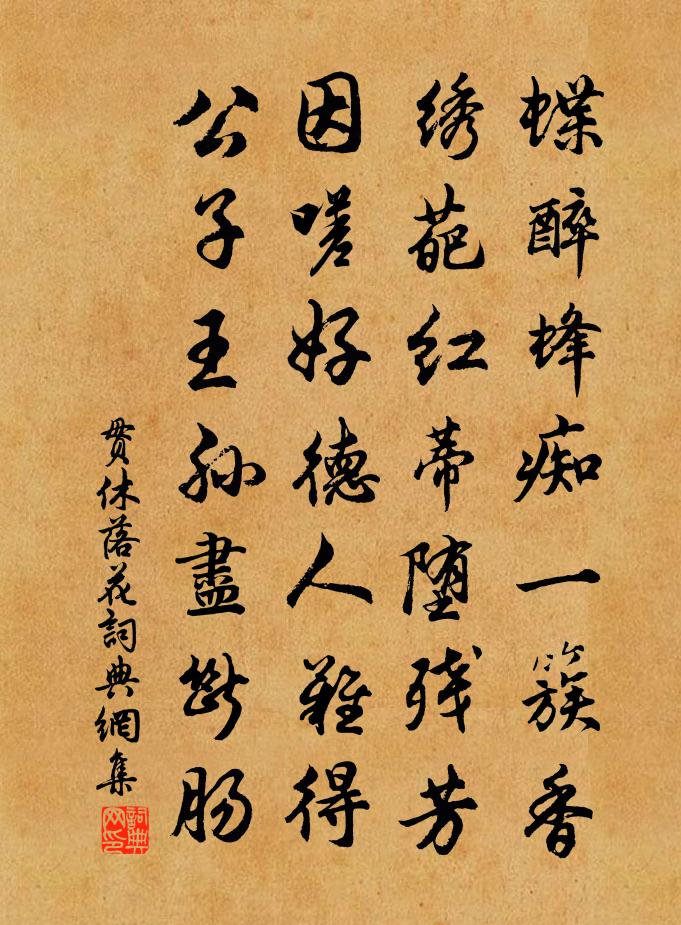 蝶醉蜂痴一簇香
绣葩红蒂堕残芳
因嗟好德人难得
公子王孙盡断肠
贯休落花詞典網集
詞典网印